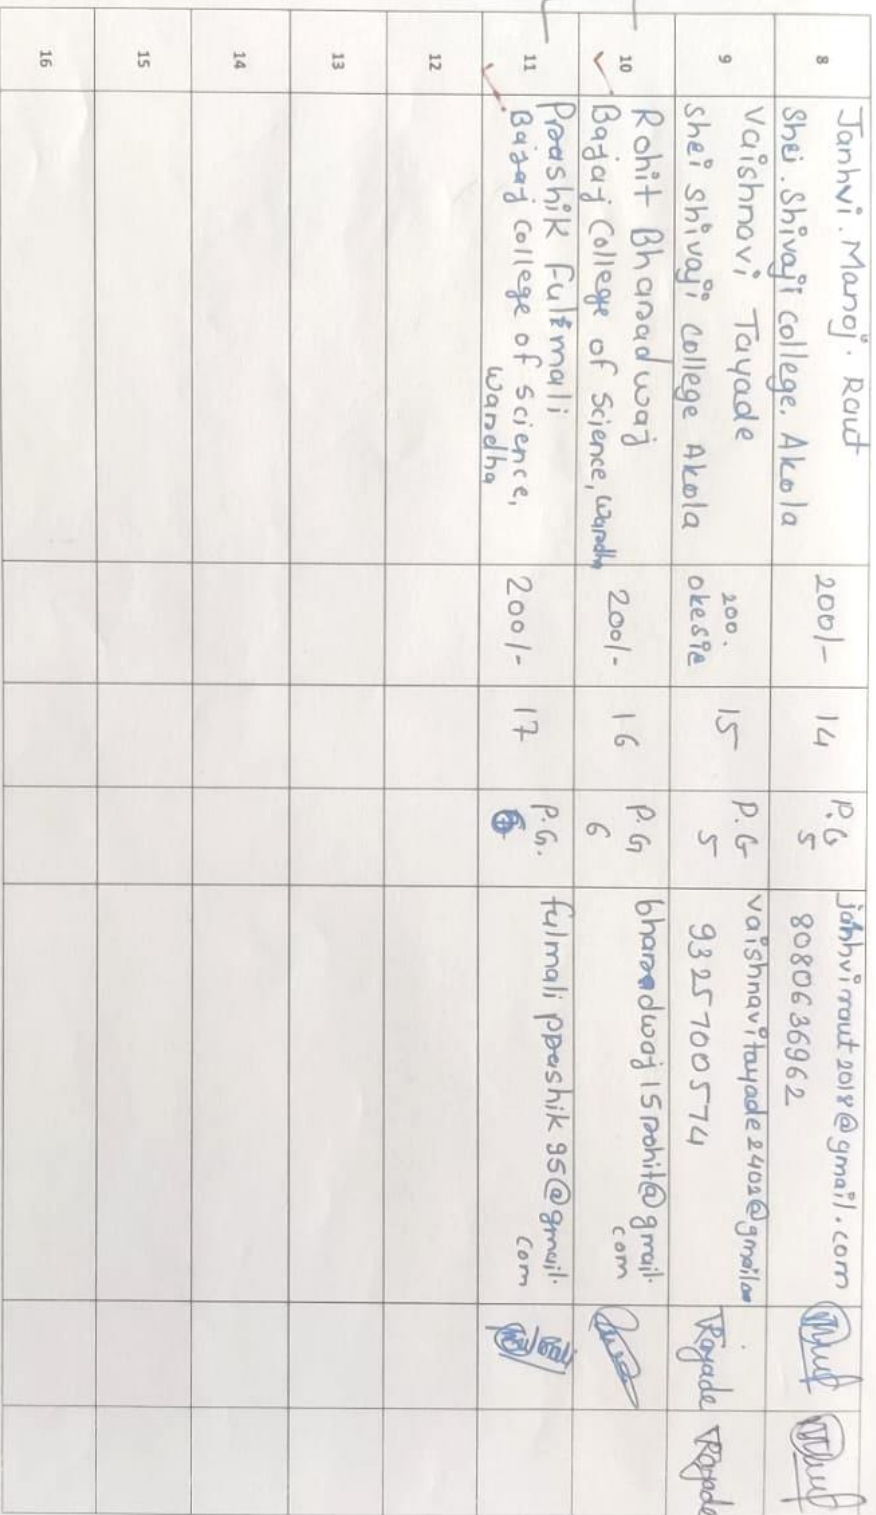 8
Janhvi. Manoj. Raut
Shri. Shivaji College. Akola
200/-
14
P.G
5
janhvirraut2018@gmail.com
8080636962
9
Vaishnavi Tayade
Shri Shivaji College Akola
200.
15
P.G
5
vaishnavitayade2402@gmail.com
9325700574
Tayade
Tayade
10
Rohit Bharadwaj
Bajaj College of Science, Wardha
200/-
16
P.G
6
bharadwaj15rohit@gmail.
com
11
Prashik Fulmali
Bajaj College of Science,
Wardha
200/-
17
P.G.
6
fulmaliprashik95@gmail.
com
12
13
14
15
16